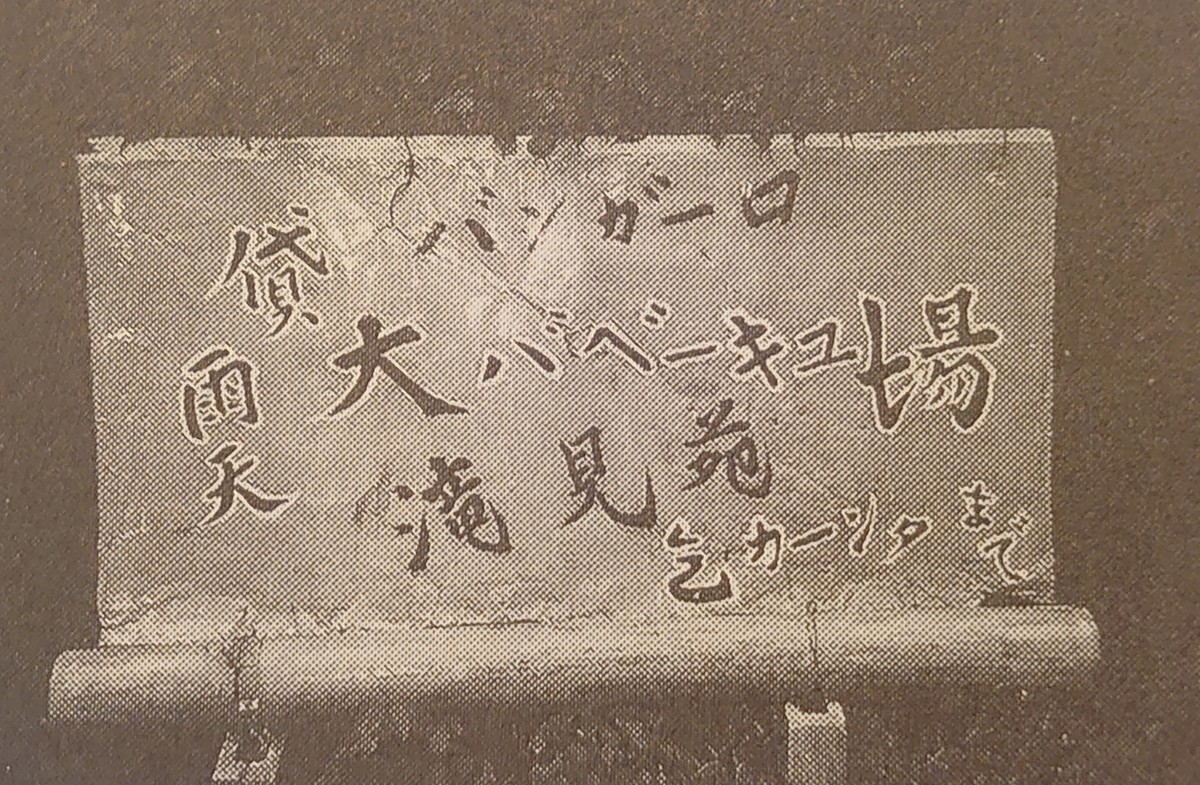 貸バンガーロ
雨天
大バベーキユ場
滝見苑
乞カーンタまで